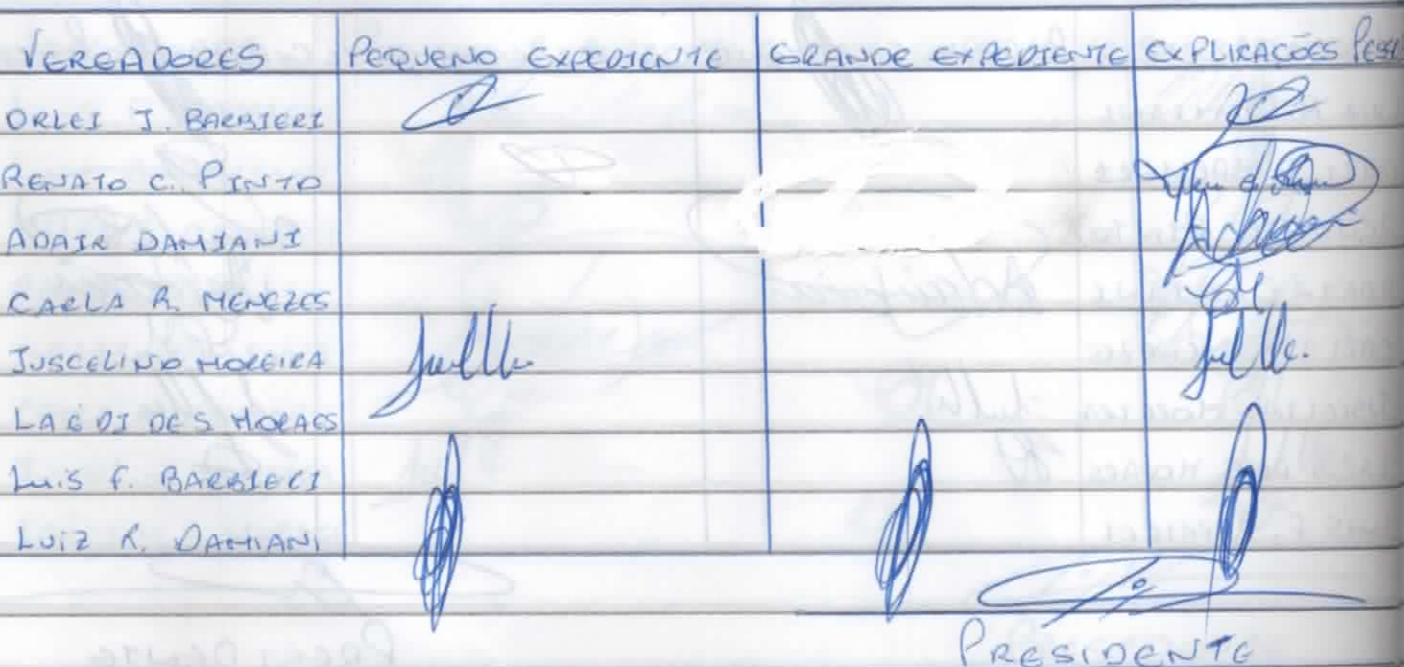 VEREADORES PEQUENO EXPEDIENTE GRANDE EXPEDIENTE EXPLICAÇÕES
ORLEI J. BARBIERI
RENATO C. PINTO
ADAIR DAMIANI
CARLA R. MENEZES
JUSCELINO MOREIRA
LAEDI DE S. MORAES
LUIS F. BARBIERI
LUIZ R. DAMIANI
PRESIDENTE